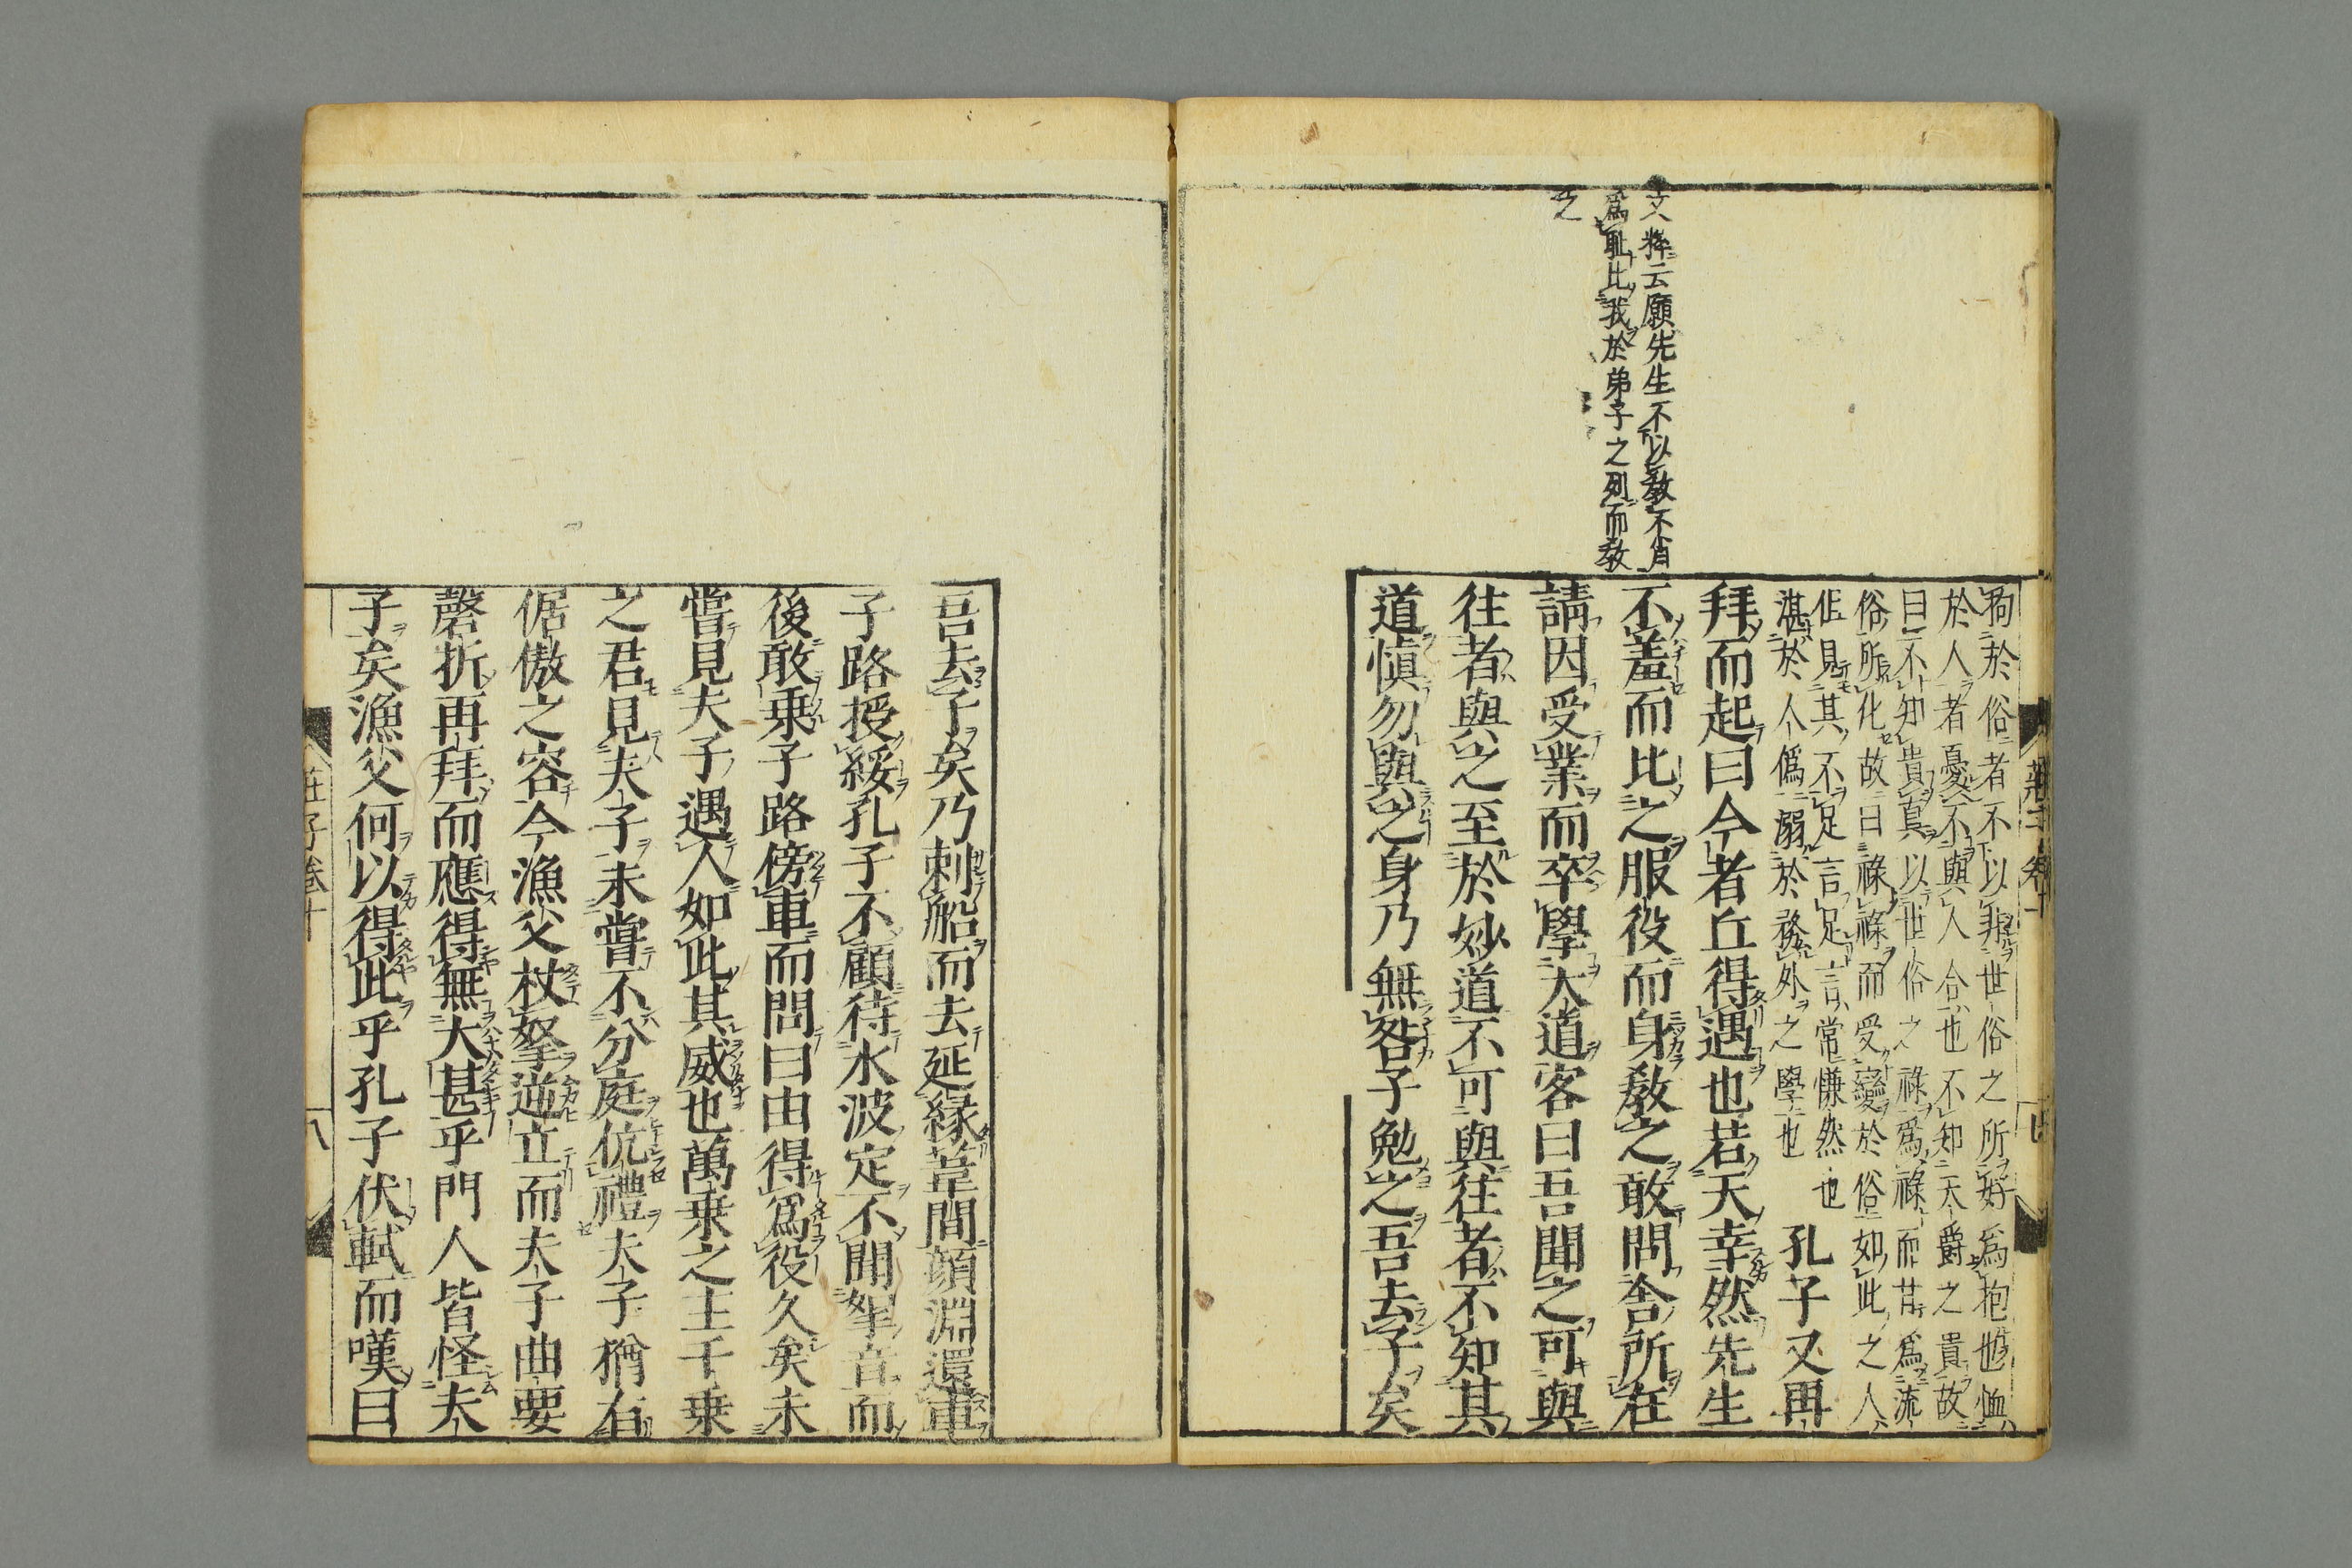 文粹云願先生不以敎不肖
爲耻比我於弟子之列而敎
之
狥於俗者不以非世俗之所好爲抱也恤
於人者憂不與人合也不知天爵之貴故
曰不知貴真以世俗之祿爲祿而甘爲流
俗所化故曰祿祿而受變於俗如此之人
但見其不足言足言常慊然也
湛於人僞溺於務外之學也　孔子又再
拜而起曰今者丘得遇也若天幸然先生
不羞而比之服役而身敎之敢問舍所在
請因受業而卒學大道客曰吾聞之可與
往者與之至於妙道不可與往者不知其
道愼勿與之身乃無咎子勉之吾去子矣
吾去子矣乃刺船而去延緣葦間顔淵還車
子路授綏孔子不顧待水波定不聞拏音而
後敢乗子路傍車而問曰由得爲役久矣未
嘗見夫子遇人如此其威也萬乗之主千乗
之君見夫子未嘗不分庭伉禮夫子猶有
倨傲之容今漁父杖拏逆立而夫子曲要
磬折再拜而應得無大甚乎門人皆怪夫
子矣漁父何以得此乎孔子伏軾而嘆曰
莊子卷十
八